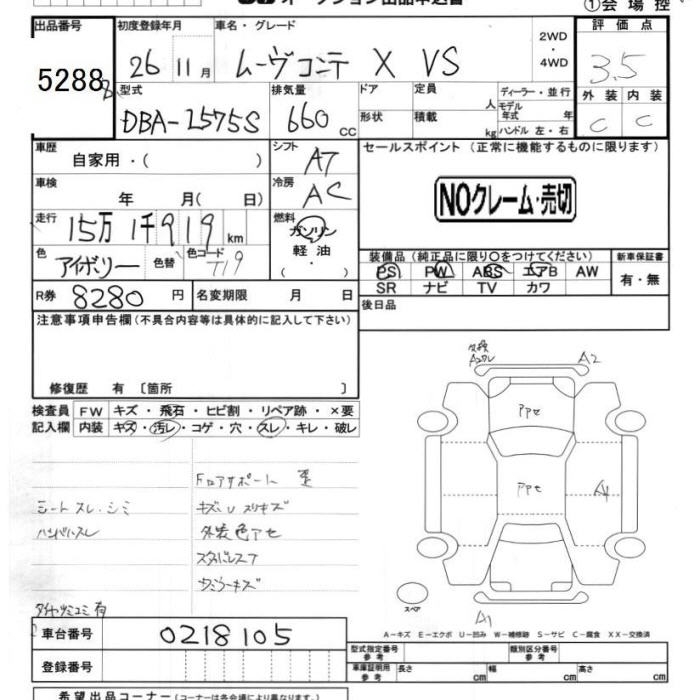 ①会場控
出品番号 初度登録年月 車名・グレード 評価点
5288 26 11月 ムーヴコンテ X VS 2WD・4WD 3.5
型式 排気量 ドア 定員 人 ディーラー・並行 外装 内装
DBA-L575S 660 CC 形状 積載 kg モデル年式 年 ハンドル 左・右 C C
車歴 自家用・( ) シフト AT セールスポイント (正常に機能するものに限ります)
車検 年 月( 日) 冷房 AC NOクレーム・売切
走行 15万 1千919 km 燃料 ガソリン・軽油
色 アイボリー 色替 色コード T19 装備品 (純正品に限り○をつけてください) 新車保証書
PS PW ABS エアB AW 有・無
SR ナビ TV カワ
R券 8280円 名変期限 月 日 後日品
注意事項申告欄 (不具合内容等は具体的に記入して下さい)
修復歴 有 〔箇所 〕
検査員記入欄 FW キズ・飛石・ヒビ割・リペア跡・×要
内装 キズ・汚レ・コゲ・穴・スレ・キレ・破レ
交換
A2
アセ
アセ
A1
スペア
A1
シートスレ・シミ
ハンドルスレ
キズU スリキズ
外装色アセ
スタッドレス
タイヤツミコミ有
A-キズ E-エクボ U-凹み W-補修跡 S-サビ C-腐食 XX-交換済
車台番号 0218105
登録番号
型式指定番号 参考 類別区分番号 参考
車庫証明用 参考 長さ cm 幅 cm 高さ cm
希望出品コーナー (コーナーは各会場により異なります。)